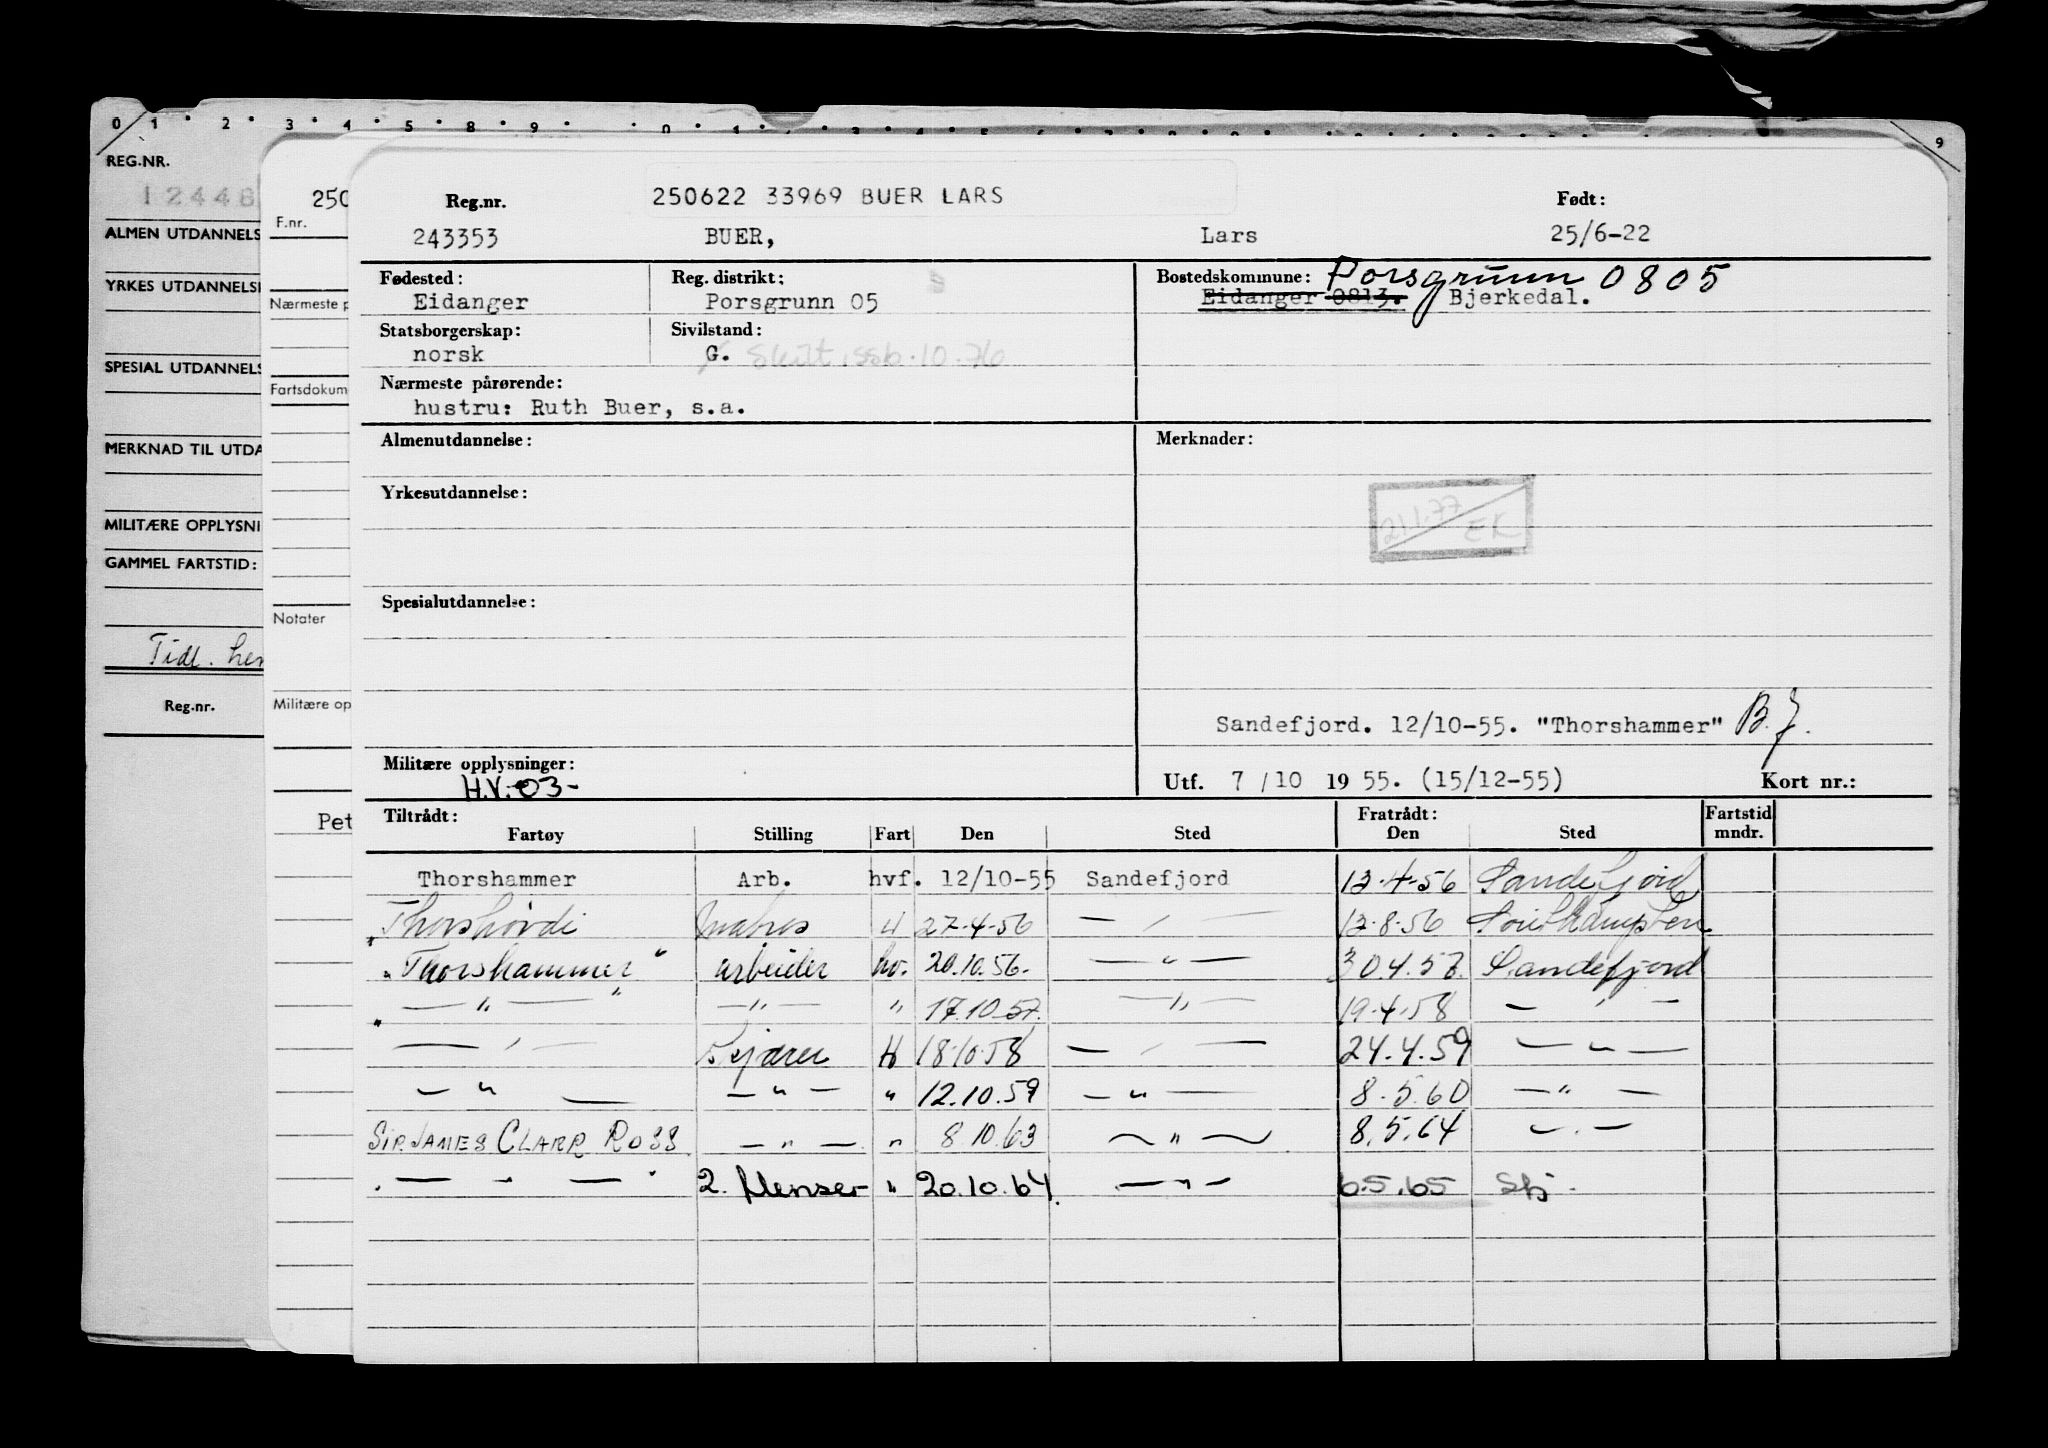 0 1 2 3 4 5 8 9
9
REG.NR.
12448
ALMEN UTDANNELS
YRKES UTDANNELS
SPESIAL UTDANNELS
MERKNAD TIL UTDA
MILITÆRE OPPLYSNI
GAMMEL FARTSTID:
Tidl. her
Reg.nr.
250
F.nr.
Nærmeste p
Fartsdokum
Notater
Militære op
Pet
Reg.nr. 250622 33969 BUER LARS Født:
243353 BUER, Lars 25/6-22
Fødested: Reg. distrikt: Bostedskommune: Porsgrunn 0805
Eidanger Porsgrunn 05 Eidanger 0813. Bjerkedal.
Statsborgerskap: Sivilstand:
norsk G. Skilt. ssb. 10.76
Nærmeste pårørende:
hustru: Ruth Buer, s.a.
Almenutdannelse: Merknader:
Yrkesutdannelse:
21.1.77 EK
Spesialutdannelse:
Sandefjord. 12/10-55. "Thorshammer" B.J.
Militære opplysninger:
H.V. 03- Utf. 7/10 1955. (15/12-55) Kort nr.:
Tiltrådt: Fratrådt: Fartstid
Fartøy Stilling Fart Den Sted Den Sted mndr.
Thorshammer Arb. hvf. 12/10-55 Sandefjord 12-4-56 Sandefjord
"Thorshövdi matros H 27-4-56 — " — 12-8-56
"Thorshammer" arbeider hv. 20.10.56. — " — 30.4.57. Sandefjord
" — " — " — " — " 17.10.57. — " — 19.4.58 — " —
— " — H 18.10.58 — " — 24.4.59 — " —
— " — — " — " 12.10.59 — " — 8.5.60 — " —
SIR JAMES CLARR ROSS — " — " 8.10.63 — " — 8.5.64 — " —
" — " — " 2. " 20.10.64. — " — 6.5.65 Sfj.